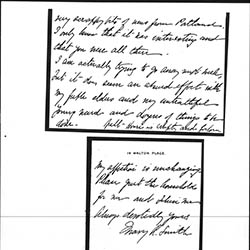 my scrappy bits of news from Portland.
I only knew that it was interesting and
that you were all there.
I am actually trying to go away next week,
but it does seem an absurd effort with
my feeble elders and my unfaithful
young ward and dozens of things to be
done.
is empty and
10 WALTON PLACE.
My affection is unchanging
Please greet the household
for me and
Always devotedly yours
Mary R. Smith